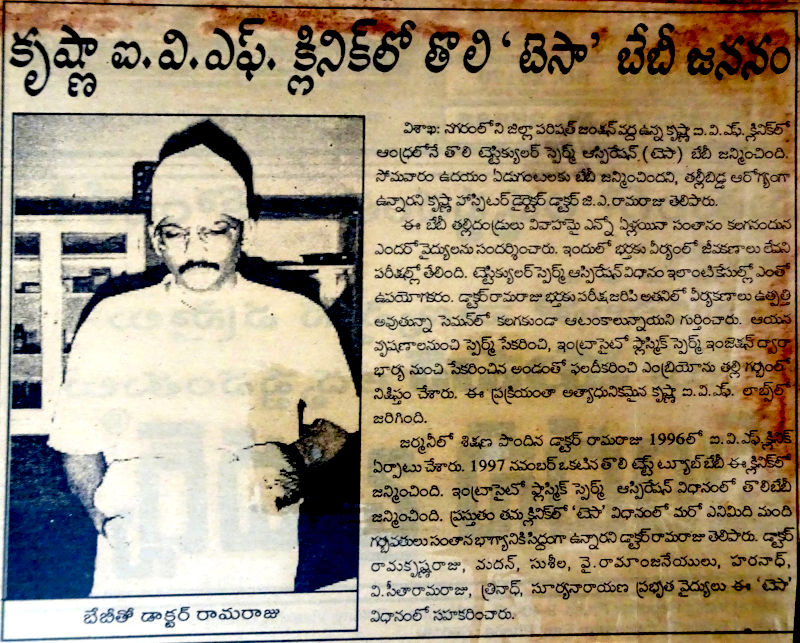 కృష్ణా ఐ.వి.ఎఫ్. క్లినిక్‌లో తొలి 'టెసా' బేబీ జననం
విశాఖ: నగరంలోని జిల్లా పరిషత్ జంక్షన్ వద్ద ఉన్న కృష్ణా ఐ.వి.ఎఫ్. క్లినిక్‌లో
ఆంధ్రలోనే తొలి టెస్టిక్యులర్ స్పెర్మ్ ఆస్పిరేషన్ (టెసా) బేబీ జన్మించింది.
సోమవారం ఉదయం ఏడుగంటలకు బేబీ జన్మించిందని, తల్లీబిడ్డ ఆరోగ్యంగా
ఉన్నారని కృష్ణా హాస్పిటర్ డైరెక్టర్ డాక్టర్ జి.ఎ. రామరాజు తెలిపారు.
ఈ బేబీ తల్లిదండ్రులు వివాహమై ఎన్నో ఏళ్లయినా సంతానం కలగనందున
ఎందరో వైద్యులను సందర్శించారు. ఇందులో భర్తకు వీర్యంలో జీవకణాలు లేవని
పరీక్షల్లో తేలింది. టెస్టిక్యులర్ స్పెర్మ్ ఆస్పిరేషన్ విధానం ఇలాంటి కేసుల్లో ఎంతో
ఉపయోగకరం. డాక్టర్ రామరాజు భర్తకు పరీక్ష జరిపి అతనిలో వీర్యకణాలు ఉత్పత్తి
అవుతున్నా సెమన్‌లో కలగకుండా ఆటంకాలున్నాయని గుర్తించారు. ఆయన
వృషణాలనుంచి స్పెర్మ్ సేకరించి, ఇంట్రాసైటో ప్లాస్మిక్ స్పెర్మ్ ఇంజెక్షన్ ద్వారా
భార్య నుంచి సేకరించిన అండంతో ఫలదీకరించి ఎంబ్రియోను తల్లి గర్భంలో
నిక్షిప్తం చేశారు. ఈ ప్రక్రియంతా అత్యాధునికమైన కృష్ణా ఐ.వి.ఎఫ్. లాబ్స్‌లో
జరిగింది.
జర్మనీలో శిక్షణ పొందిన డాక్టర్ రామరాజు 1996లో ఐ.వి.ఎఫ్ క్లినిక్
ఏర్పాటు చేశారు. 1997 నవంబర్ ఒకటిన తొలి టెస్ట్ ట్యూబ్ బేబీ ఈ క్లినిక్‌లో
జన్మించింది. ఇంట్రాసైటో ప్లాస్మిక్ స్పెర్మ్ ఆస్పిరేషన్ విధానంలో తొలిబేబీ
జన్మించింది. ప్రస్తుతం తమ క్లినిక్‌లో 'టెసా' విధానంలో మరో ఎనిమిది మంది
గర్భవతులు సంతాన భాగ్యానికి సిద్ధంగా ఉన్నారని డాక్టర్ రామరాజు తెలిపారు. డాక్టర్
రామకృష్ణరాజు, మదన్, సుశీల, వై.రామాంజనేయులు, హరనాధ్,
వి.సీతారామరాజు, త్రినాధ్, సూర్యనారాయణ ప్రభృత వైద్యులు ఈ 'టెసా'
విధానంలో సహకరించారు.
బేబీతో డాక్టర్ రామరాజు